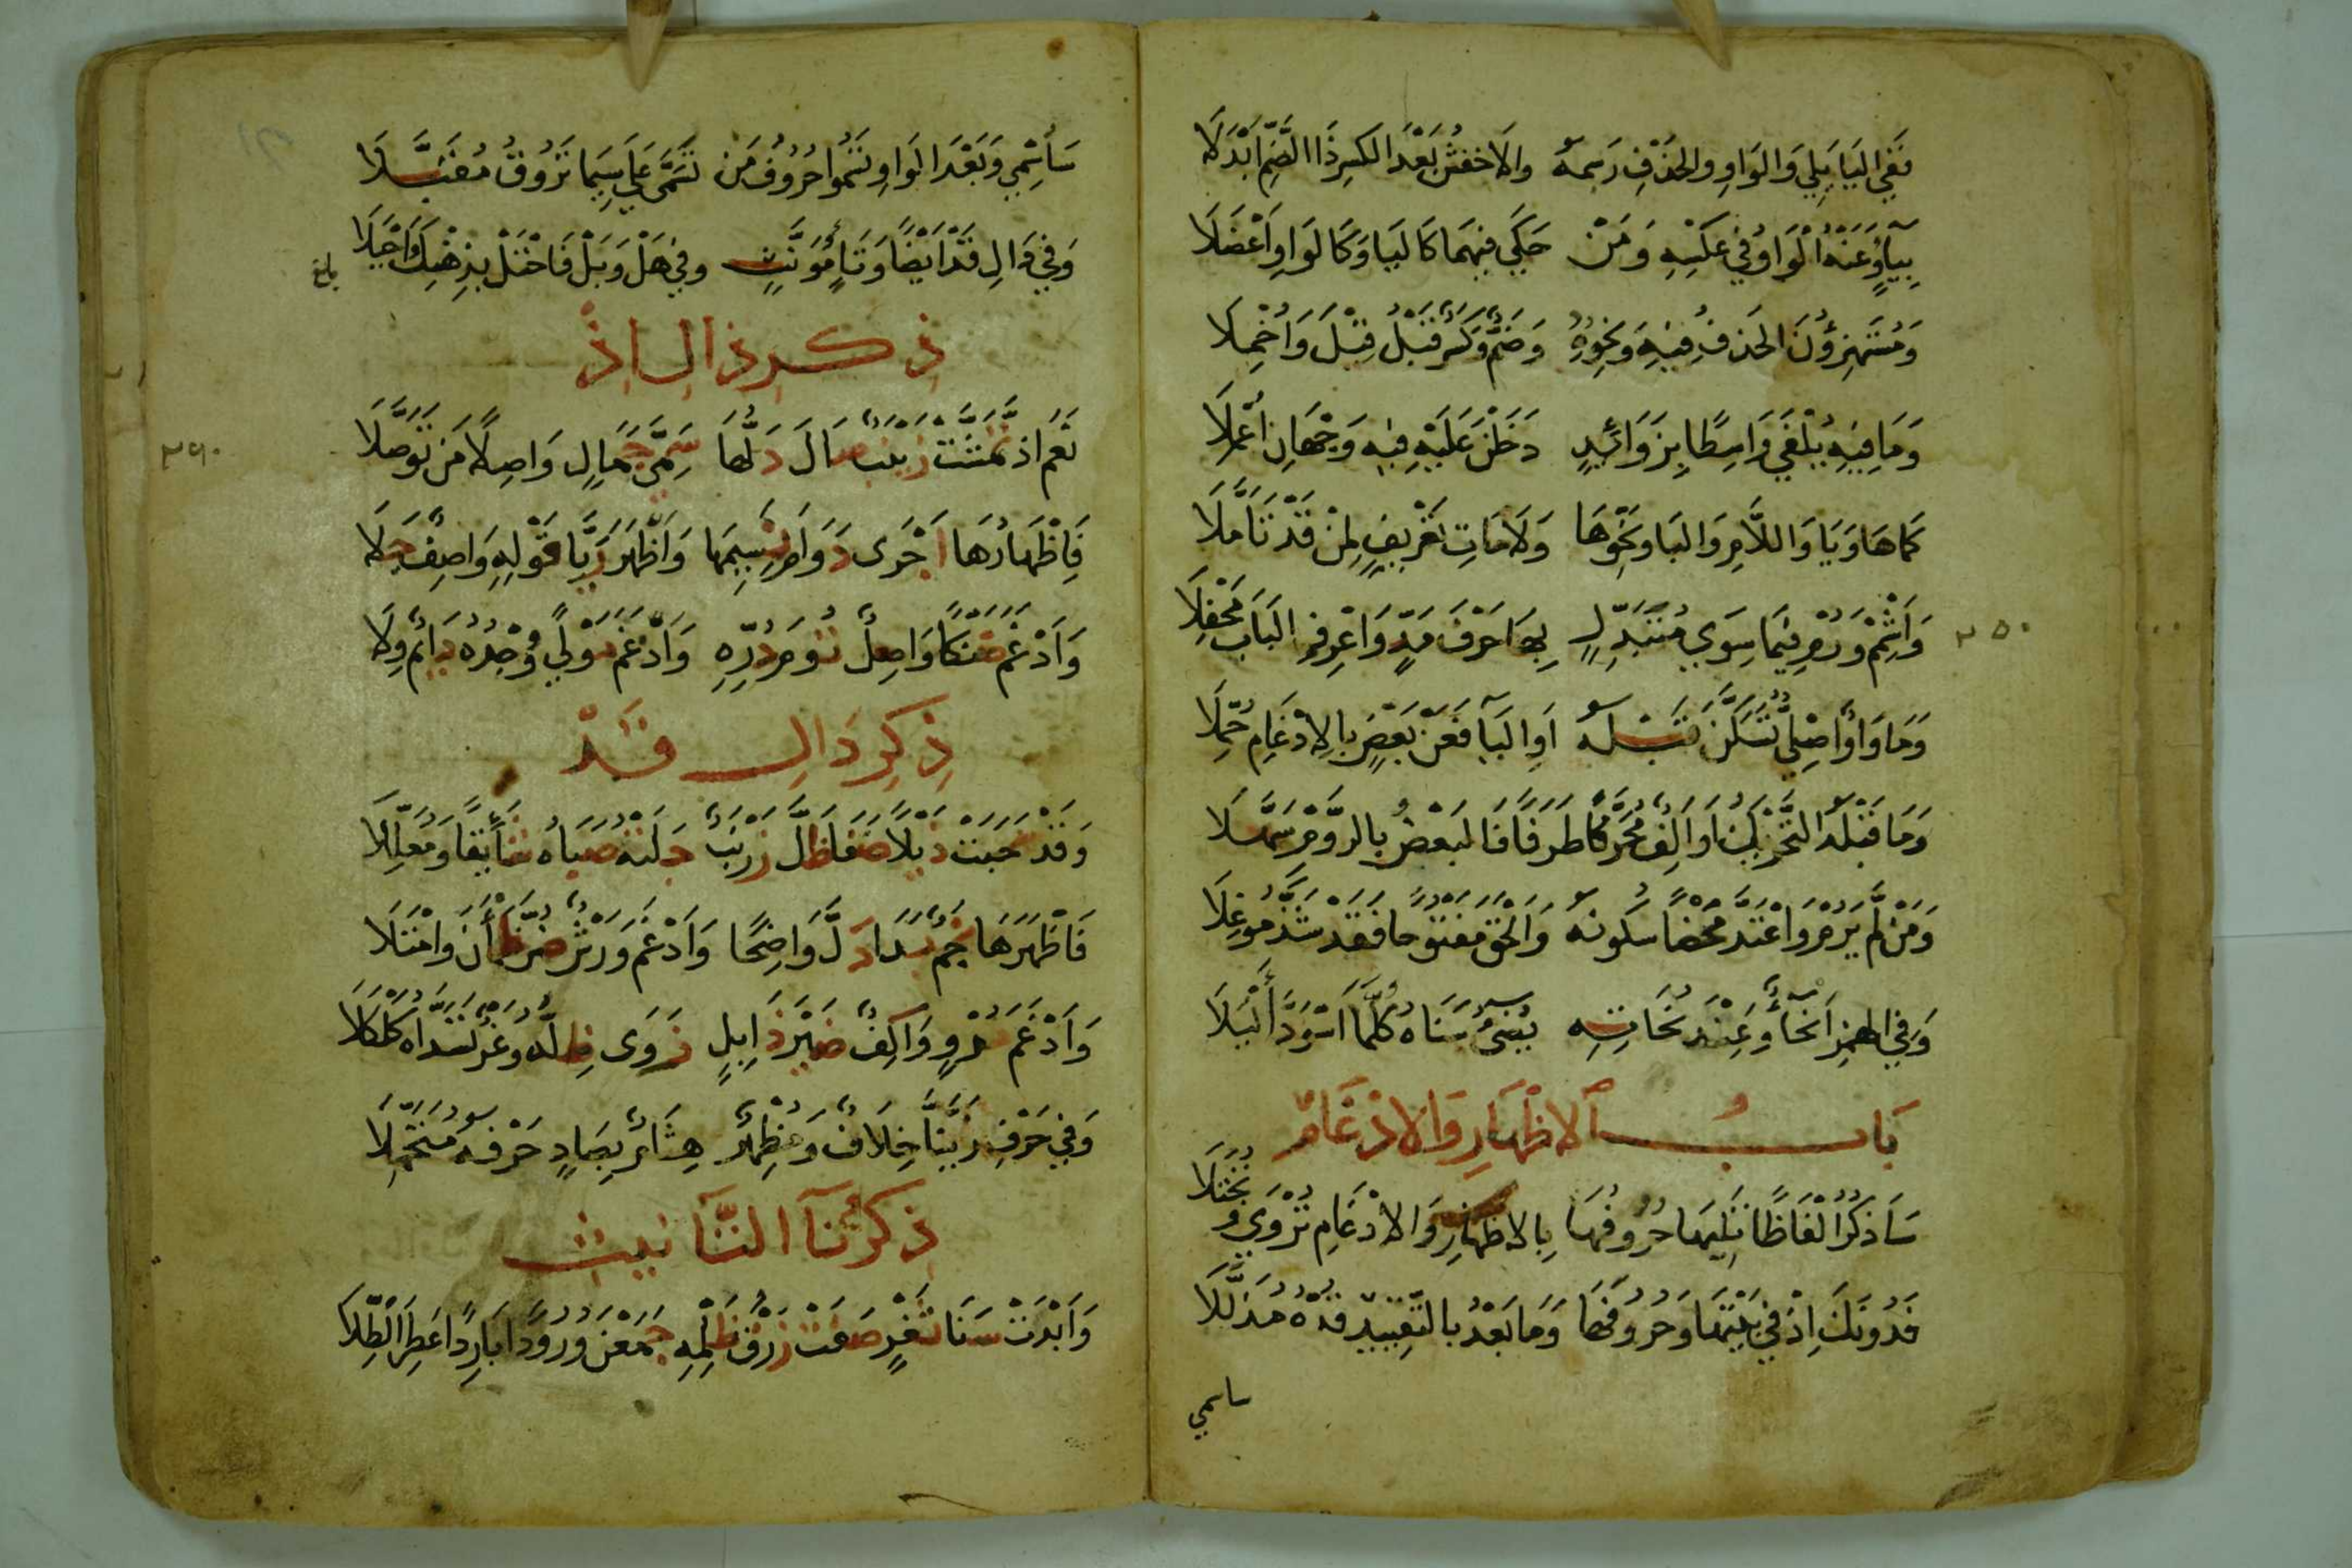 فَفِي اليَا يَلِي وَالوَاوِ وَالحَذْفِ رَسْمَهُ وَالاَخْفَشُ بَعْدَ الكَسْرِ ذَا الضَّمِّ ابْدَلَا
بِيَآءٍ وَعَنْهُ الْوَاوُ فِي عَكْسِهِ وَمَنْ حَكَى فِيهِمَا كَاليَا وَكَالوَاوِ اَعْضَلَا
وَمُسْتَهْزِؤُنَ الحَذْفُ فِيهِ وَنَحْوِهِ وَضَمٌّ وَكَسْرٌ قَبْلُ قِيْلَ وَاُخْمِلَا
وَمَا فِيهِ يُلْفَى وَاسِطًا بِزَوَائِدٍ دَخَلْنَ عَلَيْهِ فِيهِ وَجْهَانِ اُعْمِلَا
كَمَا هَا وَيَا وَاللَّامِ وَالبَا وَنَحْوِهَا وَلَامَاتِ تَعْرِيفٍ لِمَنْ قَدْ تَاَمَّلَا
وَاَشْمِمْ وَرُمْ فِيمَا سِوَى مُتَبَدِّلٍ بِهَا حَرْفَ مَدٍّ وَاعْرِفِ البَابَ مَحْفِلَا
٢٥٠
وَمَا وَاوٌ اَصْلِيٌّ تَسَكَّنَ قَبْلَهُ اَوِ اليَآ فَعَنْ بَعْضٍ بِالِادْغَامِ حُمِّلَا
وَمَا قَبْلَهُ التَّحْرِيكُ اَوْ اَلِفٌ مُحَرَّكًا طَرَفًا فَالبَعْضُ بِالرَّوْمِ سَهَّلَا
وَمَنْ لَمْ يَرُمْ وَاعْتَدَّ مَحْضًا سُكُونَهُ وَاَلْحَقَ مَفْتُوحًا فَقَدْ شَذَّ مُوغِلَا
وَفِي الهَمْزِ اَنْحَآءٌ وَعِنْدَ نُحَاتِهِ يُضِيءُ سَنَاهُ كُلَّمَا اسْوَدَّ اَلْيَلَا
بَابُ الاِظْهَارِ وَالاِدْغَامِ
سَاَذْكُرُ اَلْفَاظًا تَلِيهَا حُرُوفُهَا بِالاِظْهَارِ وَالاِدْغَامِ تُرْوَى وَتُجْتَلَا
فَدُونَكَ اِذْ فِي بَيْتِهَا وَحُرُوفَهَا وَمَا بَعْدُ بِالتَّقْيِيدِ قُدْهُ مُذَلَّلَا
ساسمي
سَاُسْمِي وَبَعْدَ الوَاوِ تَسْمُوا حُرُوفُ مَنْ تَسَمَّى عَلَى سِيمَا تَرُوقُ مُقَبَّلَا
وَفِي دَالِ قَدْ اَيْضًا وَتَاءِ مُؤَنَّثٍ وَفِي هَلْ وَبَلْ فَاحْتَلْ بِذِهْنِكَ اَحْيَلَا
بلغ
ذِكْرِ ذَالِ اِذْ
نَعَمْ اِذْ تَمَشَّتْ زَيْنَبٌ صَالَ دَلُّهَا سَمِيَّ جَمَالٍ وَاصِلًا مَنْ تَوَصَّلَا
٢٦٠
فَاِظْهَارُهَا اَجْرَى دَوَامَ نَسِيمِهَا وَاَظْهَرَ رَيَّا قَوْلِهِ وَاصِفٌ جَلَا
وَاَدْغَمَ ضَنْكًا وَاصِلٌ تُومَ دُرِّهِ وَاَدْغَمَ مَوْلًى وُجْدُهُ دَائِمٌ وِلَا
ذِكْرِ دَالِ قَدْ
وَقَدْ سَحَبَتْ ذَيْلًا ضَفَا ظَلَّ زَرْنَبٌ جَلَتْهُ صَبَاهُ شَائِقًا وَمُعَلِّلَا
فَاَظْهَرَهَا نَجْمٌ بَدَا دَلَّ وَاضِحًا وَاَدْغَمَ وَرْشٌ ضَرَّ ظَمْاٰنَ وَامْتَلَا
وَاَدْغَمَ مُرْوٍ وَاكِفٌ ضَيْرَ ذَابِلٍ زَوَى ظِلَّهُ وَغْرٌ تَسَدَّاهُ كَلْكَلَا
وَفِي حَرْفِ زَيَّنَّا خِلَافٌ وَمُظْهِرٌ هِشَامٌ بِصَادٍ حَرْفَهُ مُتَحَمِّلَا
ذِكْرُ تَآءِ التَّانِيثِ
وَاَبْدَتْ سَنَا ثَغْرٍ صَفَتْ زُرْقُ ظَلْمِهِ جَمَعْنَ وُرُودًا بَارِدًا عَطِرَ الطِّلَا